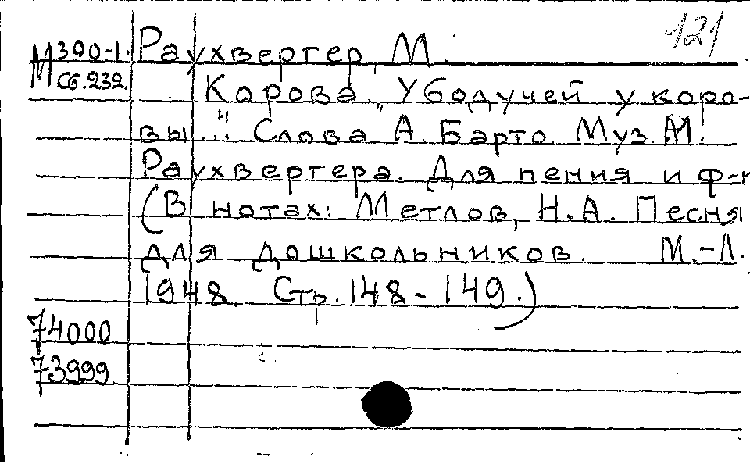 121
М300-1. Раухвергер, М.
М сб.232. Корова „У бодучей у коро-
вы..." Слова А. Барто. Муз. М.
Раухвергера. Для пения и ф-п
(В нотах: Метлов, Н.А. Песня
для дошкольников. М.-Л.
1948. Стр. 148-149.)
74000
73999